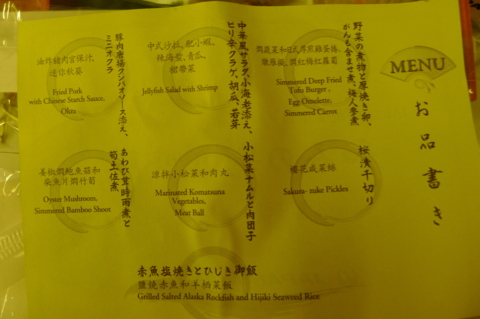 MENU
お品書き
野菜の煮物と厚焼き卵、
がんも含ませ煮、梅人参煮
Simmered Deep Fried
Tofu Burger,
Egg Omelette,
Simmered Carrot
中華風サラダ、小海老添え、
ピリ辛クラゲ、胡瓜、若芽
中式沙拉、配小蝦、
辣海蜇、青瓜、
Jellyfish Salad with Shrimp
豚肉唐揚クンパオソース添え、
ミニオクラ
油炸豬肉宮保汁、
迷你秋葵
Fried Pork
with Chinese Starch Sauce,
Okra
桜漬千切り
櫻花咸菜絲
Sakura-zuke Pickles
小松菜ナムルと肉団子
涼拌小松菜和肉丸
Marinated Komatsuna
Vegetables,
Meat Ball
あわび茸時雨煮と
筍土佐煮
柴魚片燜竹筍
Oyster Mushroom,
Simmered Bamboo Shoot
赤魚塩焼きとひじき御飯
鹽燒赤魚和羊栖菜飯
Grilled Salted Alaska Rockfish and Hijiki Seaweed Rice